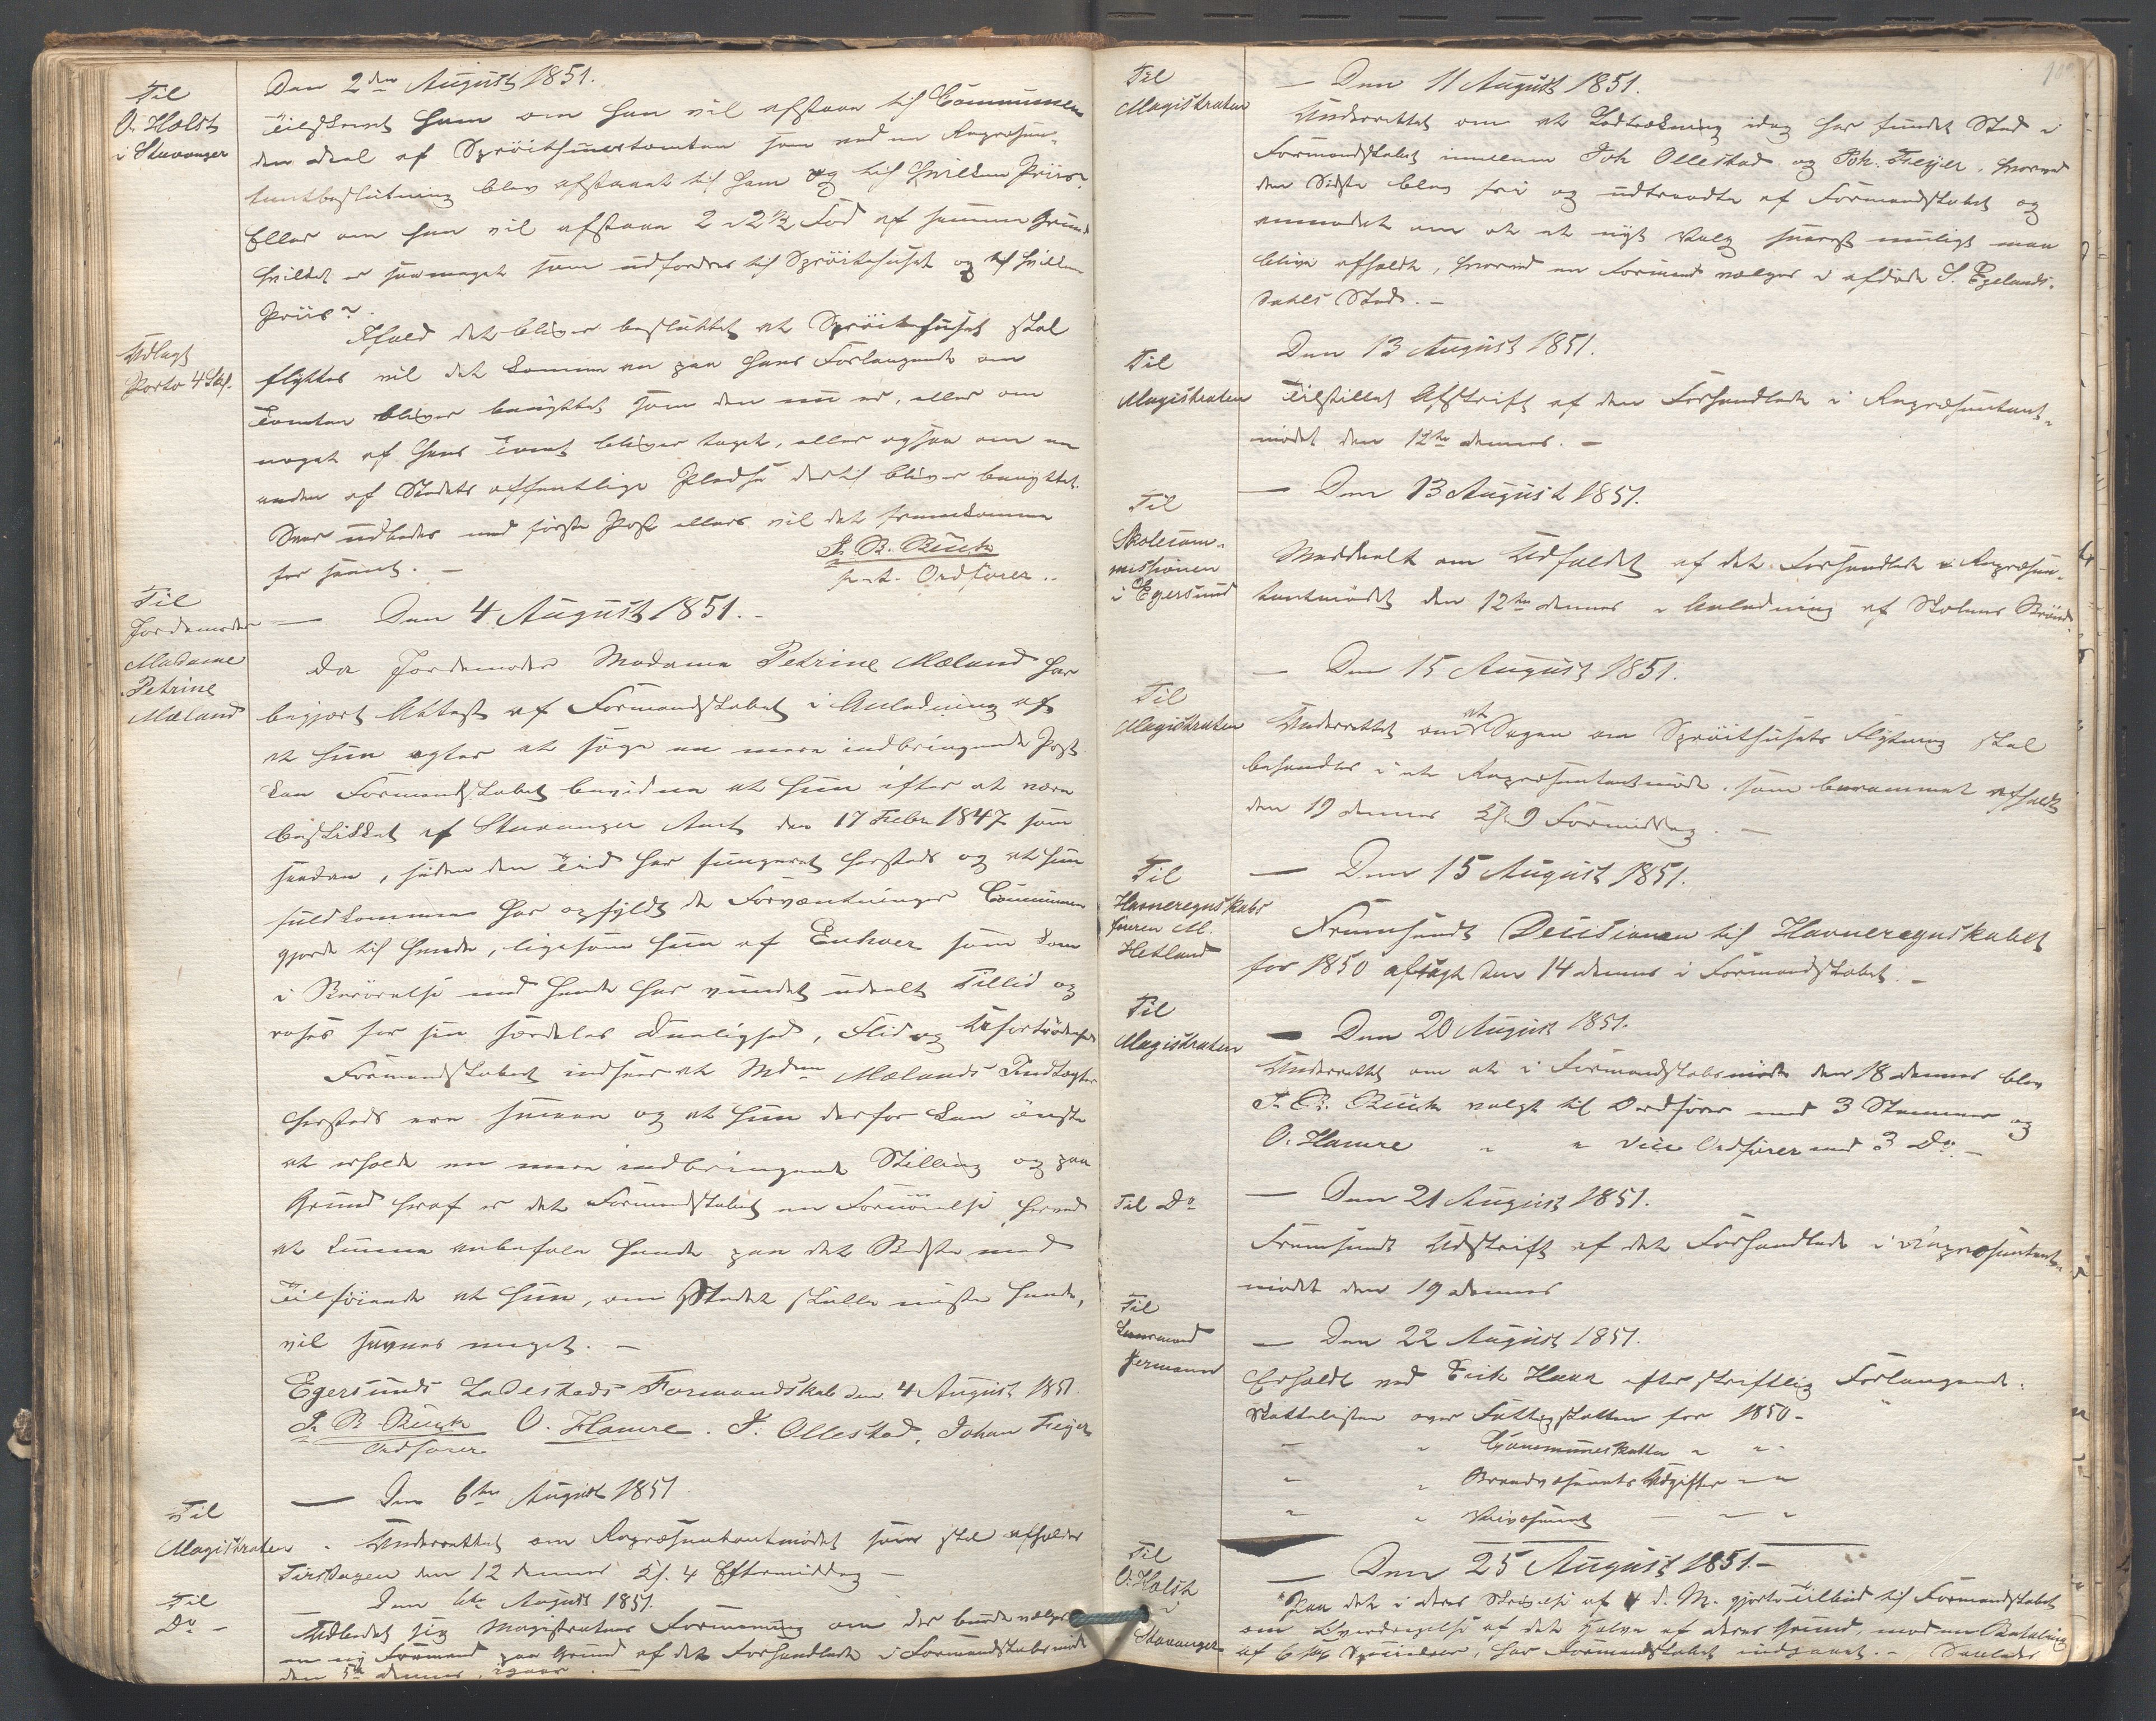 Til
O. Holst
i Stavanger
Den 2den August 1851.
Tilskrevet ham om han vil afstaae til Communen
den deel af Sprøithuustomten som ved en Repræsen-
tantbeslutning blev afstaaet til ham og til hvilken Priis?
Eller om han vil afstaae 2 a 2½ Fod af samme Grund
hvilket er saameget som udfordres til Sprøitehuset og til hvilken
Priis?
Udlagt
Porto 4 Sk.
Ifald det bliver besluttet at Sprøitehuset skal
flyttes vil det komme an paa hans Forlangende om
Tomten bliver benyttet som den nu er, eller om
noget af hans Tomt bliver taget, eller ogsaa om en
anden af Stedets offentlige Pladse dertil bliver benyttet.
Svar udbedes med første Post ellers vil det fremkomme
for seent. —
J. R. Buch
p. t. Ordfører.
Til
Jordemoder
Madame
Petrine
Mæland
— Den 4 August 1851. -
Da Jordemoder Madame Petrine Mæland har
begjært Attest af Formandskabet i Anledning af
at hun agter at søge en mere indbringende Post
kan Formandskabet bevidne at hun efter at være
beskikket af Stavanger Amt den 17 Febr 1847 som
saadan, siden den Tid har fungeret hersteds og at hun
fuldkommen har opfyldt de Forventninger Communen
gjorde til hende, ligesom hun af Enhver som kom
i Berørelse med hende har vundet udeelt Tillid og
roses for sin særdeles Duelighed, Flid og Ufortrødenhed
Formandskabet indseer at Mdme Mælands Indtægter
hersteds ere smaae og at hun derfor kan ønske
at erholde en mere indbringende Stilling og paa
Grund heraf er det Formandskabet en Fornøielse herved
at kunne anbefale hende paa det Bedste med
Tilføiende at hun, om Stedet skulle miste hende,
vil savnes meget. —
Egersunds Ladesteds Formandskab den 4 August 1851.
J. R. Buch O. Hamre. J. Ollestad, Johan Feyer
Ordfører
Til
Magistraten
— Den 6te August 1851
Underrettet om Repræsentantmødet som skal afholdes
Tirsdagen den 12 dennes Kl. 4 Eftermiddag —
Til
Do -
Den 6te August 1851.
Udbedet sig Magistratens Formening om der burde vælges
en ny Formand paa Grund af det Forhandlede i Formandskabsmøde
den 5te dennes, igaar. —
Til
Magistraten
— Den 11 August 1851.
Underrettet om at Lodtrækning idag har fundet Sted i
Formandskabet imellem Joh Ollestad og Joh. Feyer, hvorved
den Sidste blev fri og udtraadte af Formandskabet og
anmodet om at et nyt Valg snarest muligt maa
blive afholdt, hvorved en Formand vælges i afdøde S. Egelands-
dahls Sted. —
Til
Magistraten
Den 13 August 1851.
Tilstillet Afskrift af den Forhandlede i Repræsentant-
mødet den 12te dennes. —
Til
Skolecom-
missionen
i Egersund
— Den 13 August 1851.
Meddeelt om Udfaldet af det Forhandlede i Repræsen-
tantmødet den 12te dennes i Anledning af Skolens Brønd
Til
Magistraten
— Den 15 August 1851.
Underrettet om at Sagen om Sprøithusets Flytning skal
behandles i et Repræsentantmøde som berammet afholdt
den 19 dennes Kl. 9 Formiddag. —
Til
Havneregnskabs
føreren M.
Hetland
— Den 15 August 1851.
Fremsendt Decisionen til Havneregnskabet
for 1850 afsagt den 14 dennes i Formandskabet. -
Til
Magistraten
— Den 20 August 1851.
Underrettet om at i Formandskabsmøde den 18 dennes blev
J. R. Buch valgt til Ordfører med 3 Stemmer og
O. Hamre " " Vice Ordfører med 3 Do. —
Til Do
— Den 21 August 1851.
Fremsendt Udskrift af det Forhandlede i Repræsentant-
mødet den 19 dennes
Til
Lensmand
Jermann
— Den 22 August 1851.
Erholdt ved Erik Haar efter skriftlig Forlangende.
Skattelisten over Fattigskatten for 1850 -
" " Communeskatten " "
" " Brandvæsenets Udgifter " "
" " Veivæsenet — " "
Til
O. Holst
i
Stavanger
— Den 25 August 1851. -
Paa det i deres Skrivelse af 4 d. M. gjorte Tilbud til Formandskabet
om Overdragelse af det Halve af deres Grund, mod en Betaling
af 6 Specier, har Formandskabet indgaaet. - Saaledes